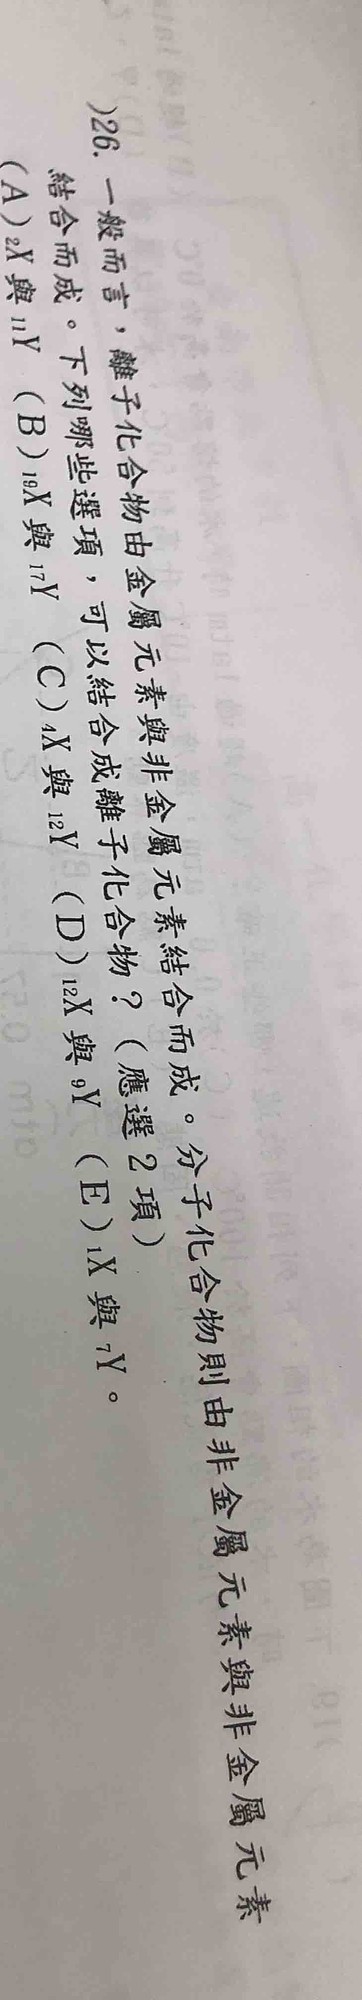 )26. 一般而言，離子化合物由金屬元素與非金屬元素結合而成。分子化合物則由非金屬元素與非金屬元素
結合而成。下列哪些選項，可以結合成離子化合物？（應選2項）
(A)₂X與₁₁Y (B)₁₉X與₁₇Y (C)₄X與₁₂Y (D)₁₂X與₉Y (E)₁X與₇Y。